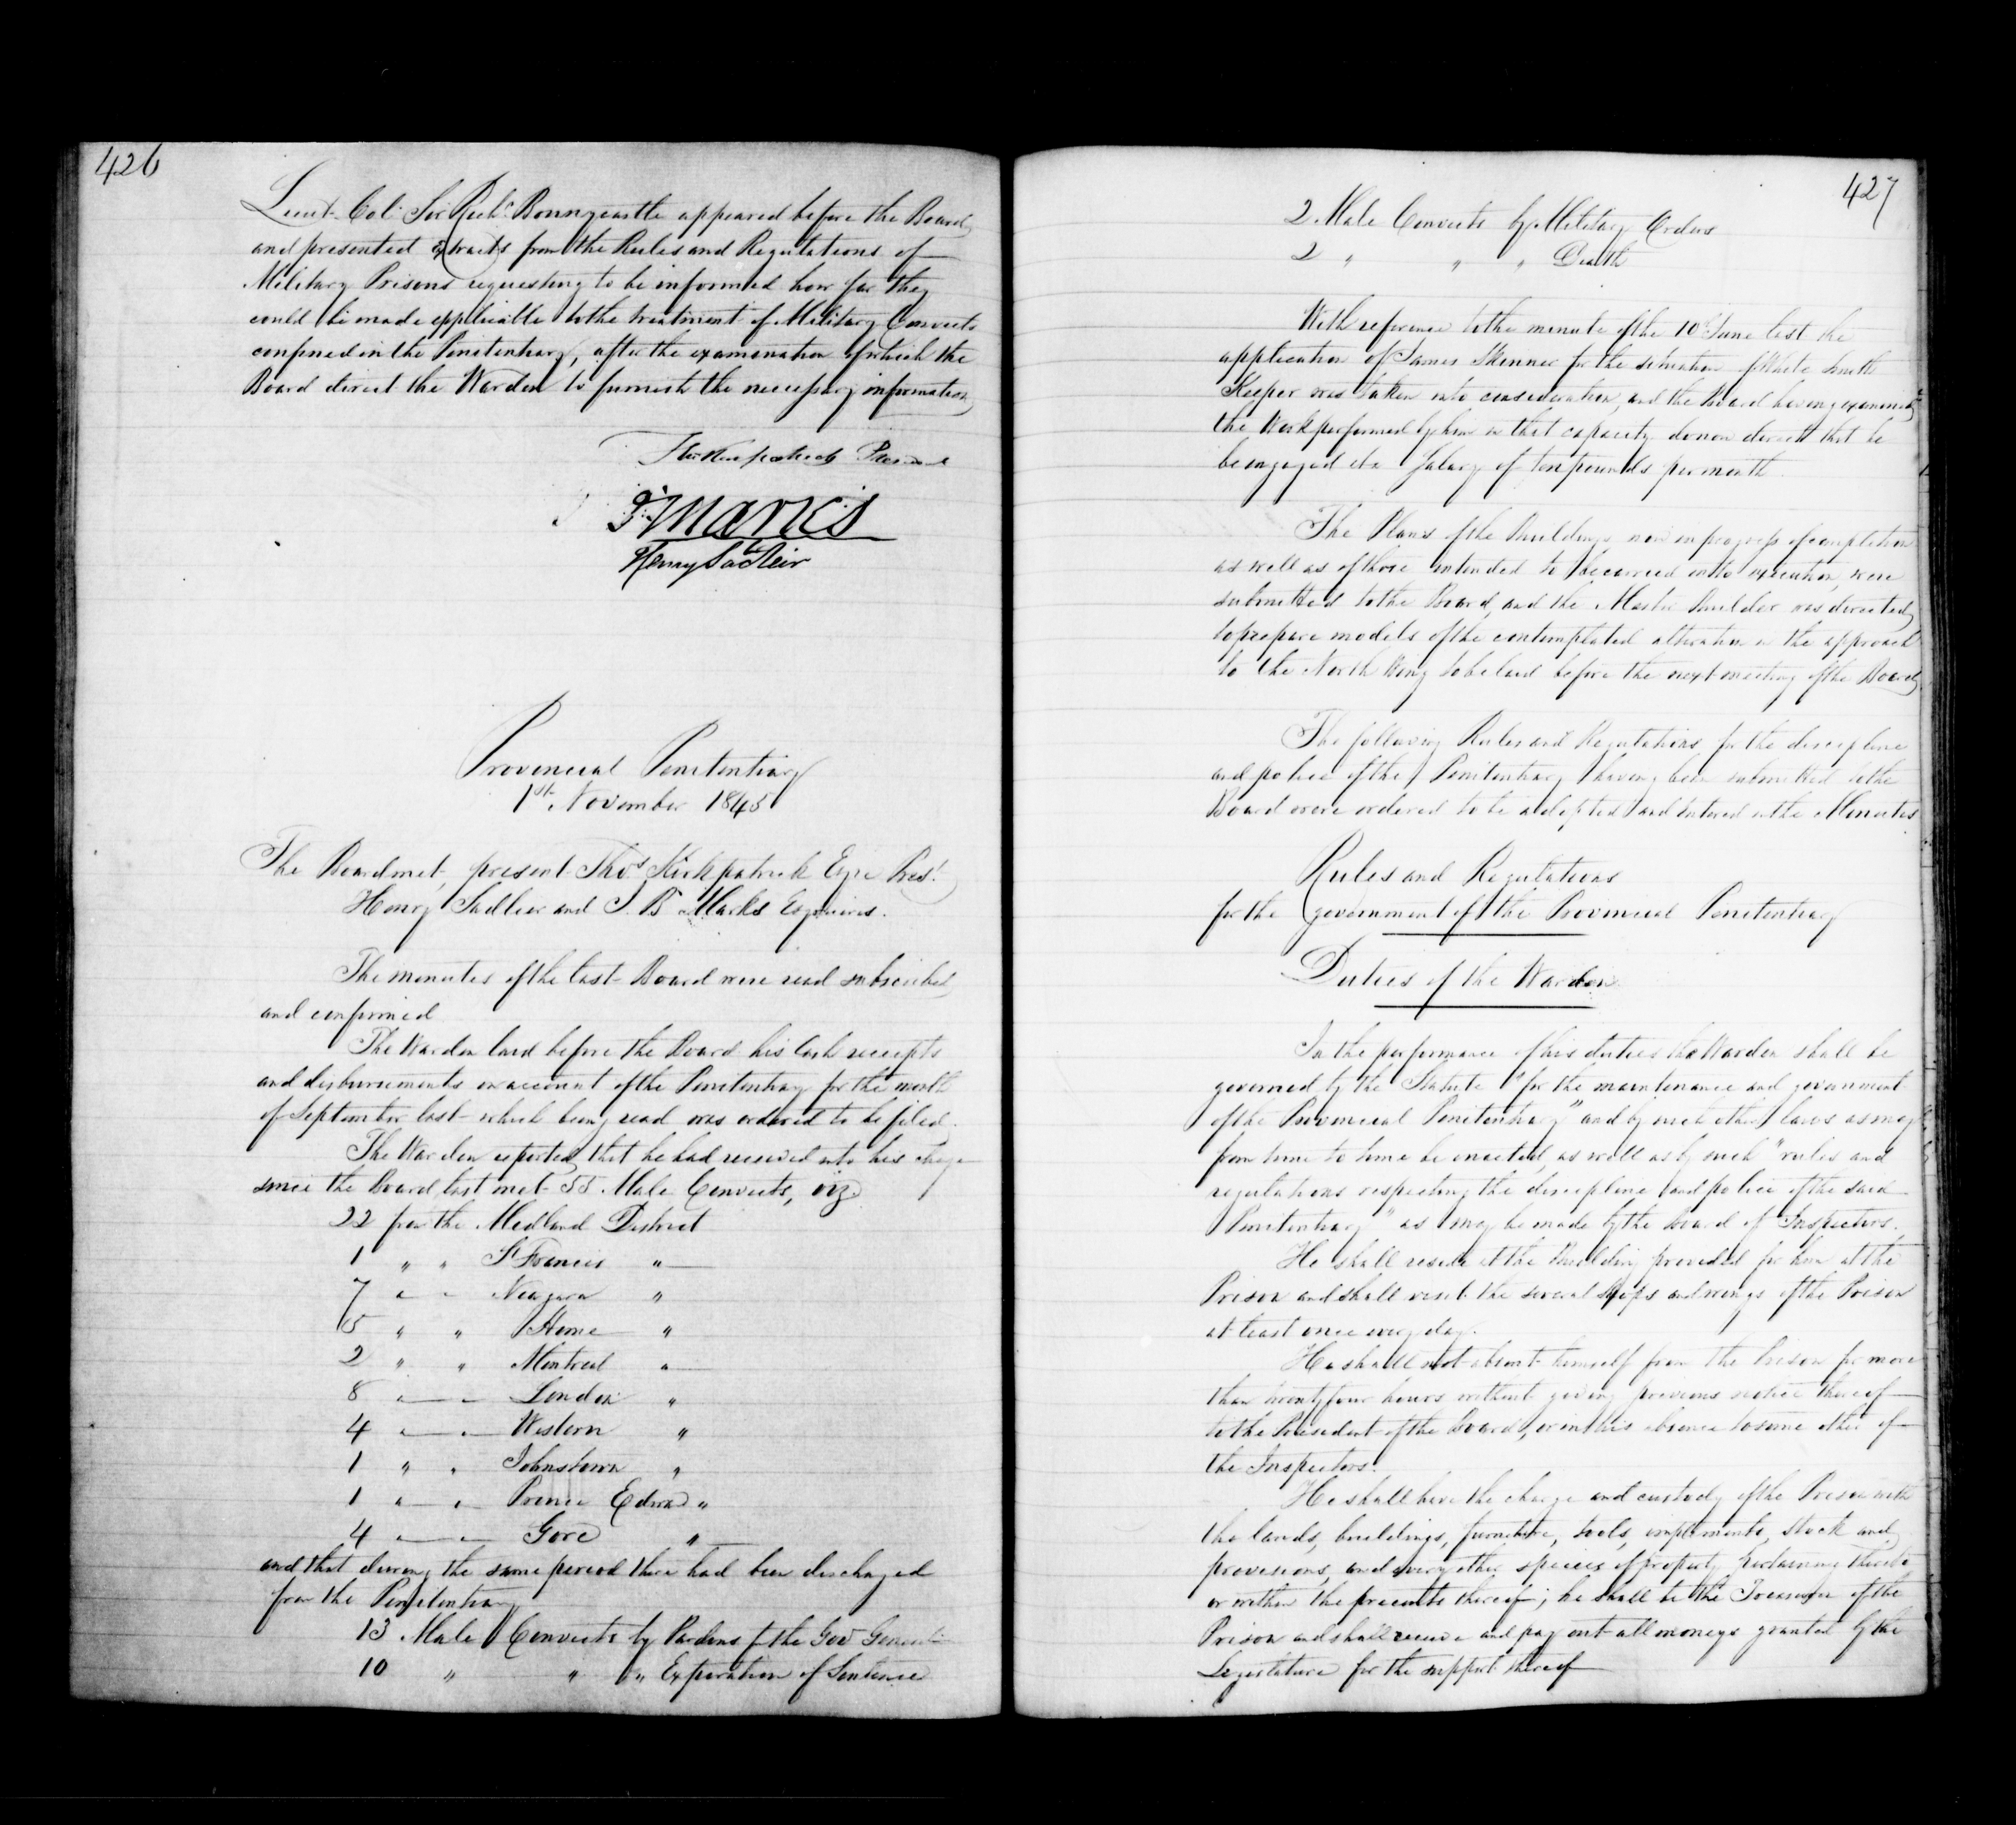 426
Lieut. Col. Sir Richd Bonnycastle appeared before the Board
and presented extracts from the Rules and Regulations of
Military Prisons requesting to be informed how far they
could be made applicable to the treatment of Military Convicts
confined in the Penitentiary, after the examination of which the
Board direct the Warden to furnish the necessary information
Thos Kirkpatrick President
J B Marks
Henry Sadleir
Provincial Penitentiary
1st November 1845
The Board met, present Thos Kirkpatrick Esqre Prest
Henry Sadleir and J. B. Marks Esquires.
The minutes of the last Board were read subscribed
and confirmed
The Warden laid before the Board his Cash receipts
and disbursements on account of the Penitentiary for the month
of September last which being read was ordered to be filed.
The Warden reported that he had received into his charge
since the Board last met 55 Male Convicts, viz
22 from the Midland District
1 " " St Francis "
7 " " Niagara "
5 " " Home "
2 " " Montreal "
8 " " London "
4 " " Western "
1 " " Johnstown "
1 " " Prince Edward "
4 " " Gore "
and that during the same period there had been discharged
from the Penitentiary
13 Male Convicts by Pardons of the Gov General
10 " " " Expiration of Sentence
427
2 Male Convicts by Military Orders
2 " " " Death
With reference to the minute of the 10th June last the
application of James Skinner for the situation of White Smith
Keeper was taken into consideration, and the Board having examined
the Work performed by him in that capacity do now direct that he
be engaged at a Salary of ten pounds per month.
The Plans of the Buildings now in progress of completion
as well as of those intended to be carried into execution, were
submitted to the Board, and the Master Builder was directed
to prepare models of the contemplated alteration in the approach
to the North Wing to be laid before the next meeting of the Board
The following Rules and Regulations for the discipline
and police of the Penitentiary having been submitted to the
Board were ordered to be adopted and entered in the Minutes
Rules and Regulations
for the government of the Provincial Penitentiary
Duties of the Warden
In the performance of his duties the Warden shall be
governed by the Statute "for the maintenance and government
of the Provincial Penitentiary" and by such other laws as may
from time to time be enacted, as well as by such "rules and
regulations respecting the discipline and police of the said
Penitentiary" as may be made by the Board of Inspectors.
He shall reside at the Building provided for him at the
Prison and shall visit the several Shops and wings of the Prison
at least once every day.
He shall not absent himself from the Prison for more
than twenty four hours without giving previous notice thereof
to the President of the Board, or in his absence to some other of
the Inspectors.
He shall have the charge and custody of the Prison with
the lands, buildings, furniture, tools, implements, stock and
provisions, and every other species of property pertaining thereto
or within the precincts thereof; he shall be the Treasurer of the
Prison and shall receive and pay out all moneys granted by the
Legislature for the support thereof